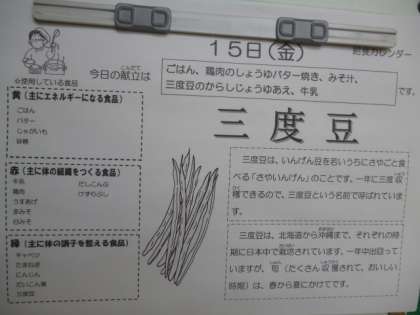 15日(金)
給食カレンダー
今日の献立は
こんだて
ごはん、鶏肉のしょうゆバター焼き、みそ汁、
三度豆のからしじょうゆあえ、牛乳
です。
☆使用している食品
黄(主にエネルギーになる食品)
ごはん
バター
じゃがいも
砂糖
赤(主に体の組織をつくる食品)
牛乳 だしこんぶ
鶏肉 けずりぶし
うすあげ
赤みそ
白みそ
緑(主に体の調子を整える食品)
キャベツ
たまねぎ
にんじん
だいこん葉
三度豆
三度豆
三度豆は、いんげん豆を若いうちにさやごと食
べる「さやいんげん」のことです。一年に三度収
穫できるので、三度豆という名前で呼ばれていま
す。
三度豆は、北海道から沖縄まで、それぞれの時
期に日本中で栽培されています。一年中出回って
いますが、旬(たくさん収穫されて、おいしい
時期)は、春から夏にかけてです。